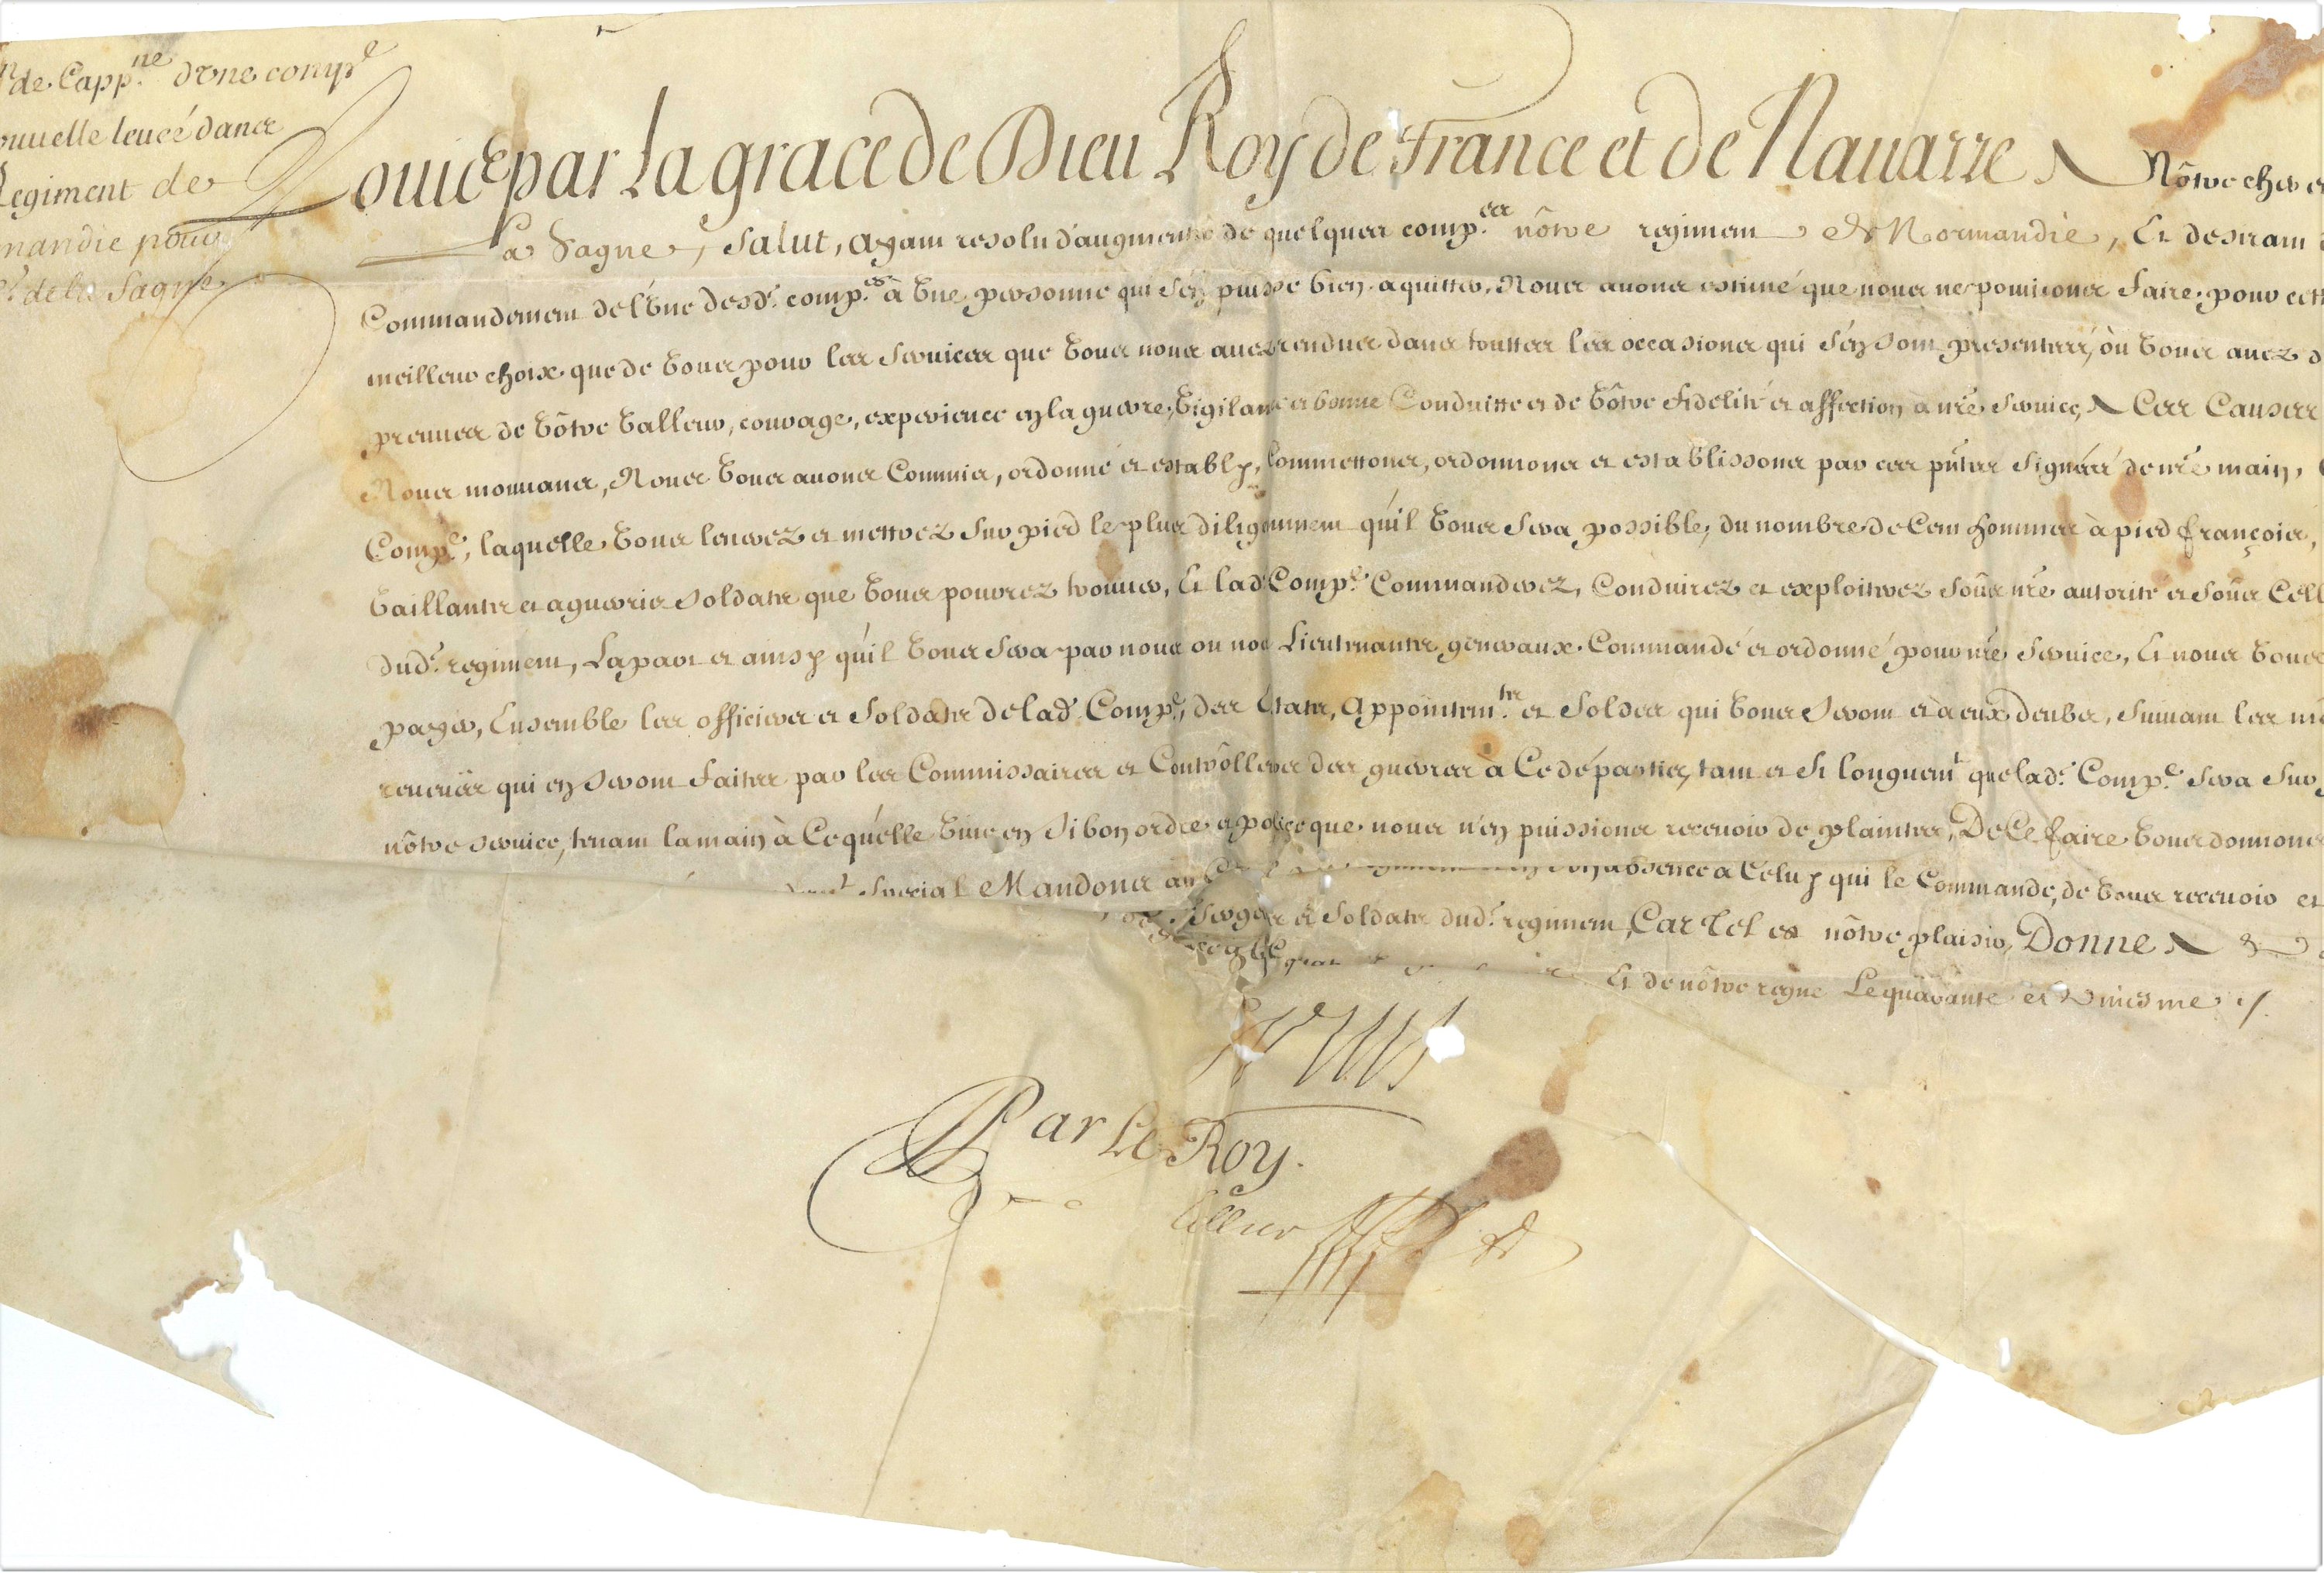 de Capp.ne d'vne comp.e
ouuelle leueé dans
Regiment de
mandie pour
de la Fagne
Louis par La grace de Dieu Roy de France et de Nauarre Nôtre cher et
La Fagne, Salut, Ayant resolu d'augmenter de quelques comp.es nôtre regiment de Normandie, Et desirant
Commandement de l'vne desd. comp.es à vne personne qui s'en puisse bien aquitter, Nous auons estimé que nous ne pouuions faire pour cett
meilleur choix que de vous pour les seruices que vous nous auez rendus dans touttes les occasions qui s'en sont presenteés, où vous auez d
preuues de vôtre valleur, courage, experience en la guerre, vigilance et bonne Conduitte et de vôtre fidelité et affection à nre seruice, Ces Causes
Nous mouuans, Nous vous auons Commis, ordonné et estably, Commettons, ordonnons et establissons par ces pntes signéés de nre main,
Comp.e, laquelle vous leuerez et mettrez sur pied le plus diligemment qu'il vous sera possible, du nombre de Cent hommes à pied françois,
vaillants et aguerris soldats que vous pourrez trouuer, Et lad. Comp.e Commanderez, Conduirez et exploiterez soûs nre autorité et soûs Cell
dud. regiment, La part et ainsy qu'il vous sera par nous ou nos Lieutenants generaux Commandé et ordonné pour nre seruice, Et nous vous
payer, Ensemble les officiers et soldats de lad. Comp.e, des Etats, Appointem.ts et soldes qui vous seront et à eux deubs, suiuant les
reueuës qui en seront faites par les Commissaires et Contrôlleurs des guerres à Ce départis, tant et si longuem.t que lad. Comp.e sera sur
nôtre seruice, tenant la main à Ce qu'elle viue en si bon ordre et police que nous n'en puissions receuoir de plaintes, De Ce faire vous donnons
special Mandons au absence a Celuy qui le Commande, de vous receuoir et
et soldats dud. regiment, Car Tel est nôtre plaisir, Donne
Et de nôtre regne Le quarante et vniesme ./.
Louis
Par Le Roy.